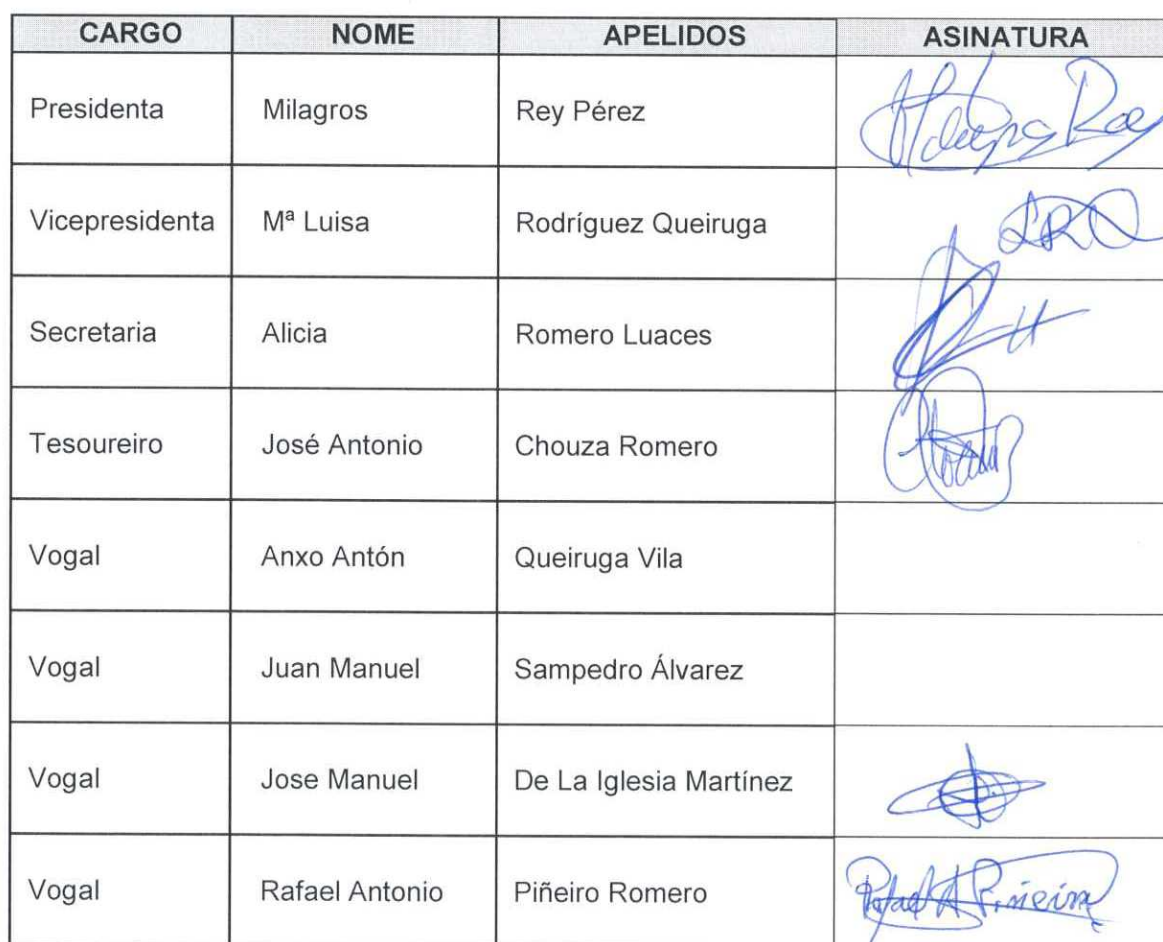 CARGO NOME APELIDOS ASINATURA
Presidenta Milagros Rey Pérez
Vicepresidenta Mª Luisa Rodríguez Queiruga
Secretaria Alicia Romero Luaces
Tesoureiro José Antonio Chouza Romero
Vogal Anxo Antón Queiruga Vila
Vogal Juan Manuel Sampedro Álvarez
Vogal Jose Manuel De La Iglesia Martínez
Vogal Rafael Antonio Piñeiro Romero Rafael A Piñeiro